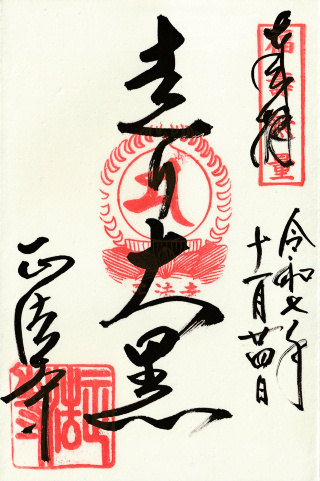 奉拝
令和七年
十一月廿四日
走り大黒
正法寺